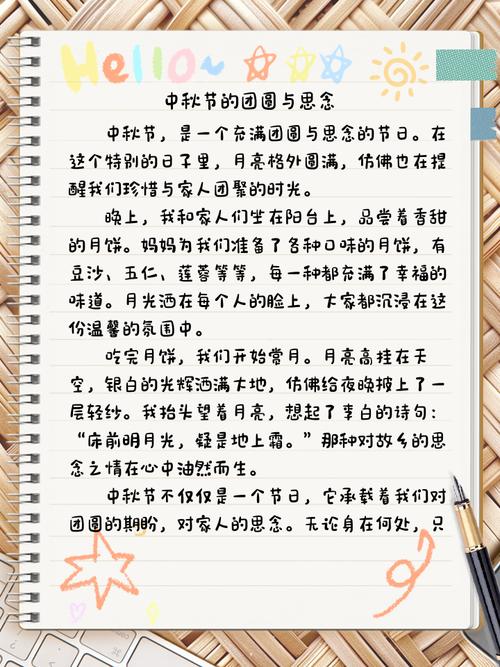 Hello~
中秋节的团圆与思念
中秋节，是一个充满团圆与思念的节日。在
这个特别的日子里，月亮格外圆满，仿佛也在提
醒我们珍惜与家人团聚的时光。
晚上，我和家人们坐在阳台上，品尝着香甜
的月饼。妈妈为我们准备了各种口味的月饼，有
豆沙、五仁、莲蓉等等，每一种都充满了幸福的
味道。月光洒在每个人的脸上，大家都沉浸在这
份温馨的氛围中。
吃完月饼，我们开始赏月。月亮高挂在天
空，银白的光辉洒满大地，仿佛给夜晚披上了一
层轻纱。我抬头望着月亮，想起了李白的诗句：
“床前明月光，疑是地上霜。”那种对故乡的思
念之情在心中油然而生。
中秋节不仅仅是一个节日，它承载着我们对
团圆的期盼，对家人的思念。无论身在何处，只